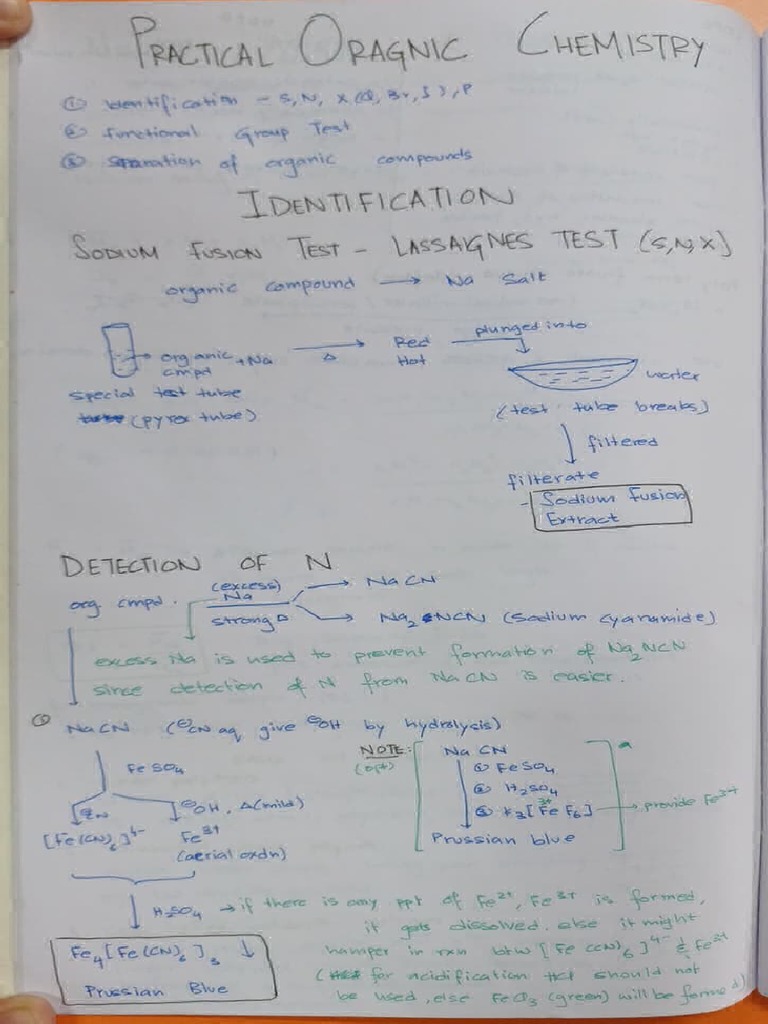 PRACTICAL ORAGNIC CHEMISTRY
① Identification - S, N, X (Cl, Br, I), P
② Functional Group Test
③ Separation of organic compounds
IDENTIFICATION
SODIUM FUSION TEST - LASSAIGNES TEST (S,N,X)
organic compound → Na Salt
organic + Na
cmpd
Δ
Red
Hot
plunged into
water
special test tube
(pyrex tube)
(test tube breaks)
filtered
filterate
- Sodium Fusion
Extract
DETECTION OF N
org cmpd.
(excess)
Na
strong Δ
→ NaCN
→ Na₂NCN (Sodium cyanamide)
excess Na is used to prevent formation of Na₂NCN
since detection of N from NaCN is easier.
① NaCN (⊖CN aq give ⊖OH by hydrolysis)
FeSO₄
⊖OH, Δ(mild)
[Fe(CN)₆]⁴⁻
Fe³⁺
(aerial oxdn)
NOTE:
(opt)
NaCN
① FeSO₄
② H₂SO₄
③ K₃[FeF₆] → provide Fe³⁺
3+
Prussian blue
H₂SO₄ → if there is any ppt of Fe²⁺, Fe³⁺ is formed,
it gets dissolved, else it might
hamper in rxn btw [Fe(CN)₆]⁴⁻ & Fe³⁺
(for acidification HCl should not
be used, else FeCl₃ (green) will be formed)
Fe₄[Fe(CN)₆]₃ ↓
Prussian Blue